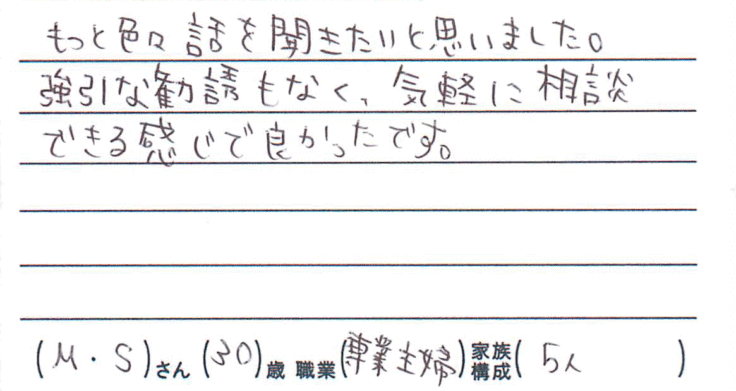 もっと色々話を聞きたいと思いました。
強引な勧誘もなく、気軽に相談
できる感じで良かったです。
(M・S)さん (30)歳 職業(専業主婦) 家族構成( 5人 )